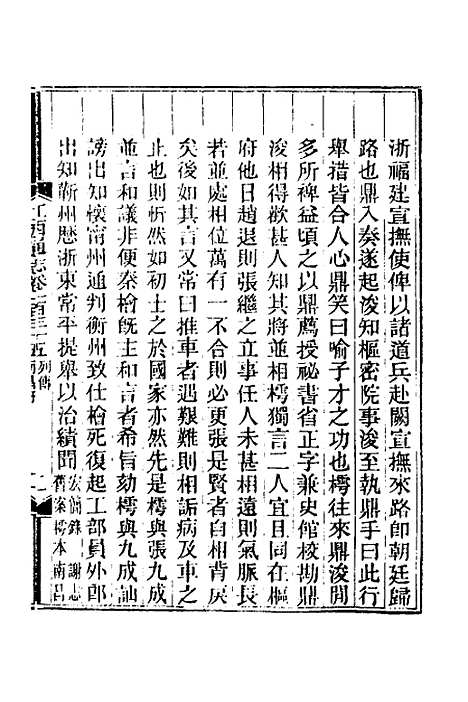 浙福建宣撫使俾以諸道兵赴闕宣撫來路卽朝廷歸
路也鼎入奏遂起浚知樞密院事浚至執鼎手曰此行
舉措皆合人心鼎笑曰喻子才之功也樗往來鼎浚閒
多所裨益頃之以鼎薦授祕書省正字兼史館校勘鼎
浚相得歡甚人知其將並相樗獨言二人宜且同在樞
府他日趙退則張繼之立事任人未甚相遠則氣脈長
若並處相位萬有一不合則必更張是賢者自相背戾
矣後如其言又常曰推車者遇艱難則相詬病及車之
止也則欣然如初士之於國家亦然先是樗與張九成
並言和議非便秦檜旣主和言者希旨劾樗與九成訕
謗出知懷甯州通判衡州致仕檜死復起工部員外郎
出知蘄州歷浙東常平提舉以治績聞宏簡錄 謝志
舊案樗本南昌
江西通志卷一百三十五 列傳
南昌府